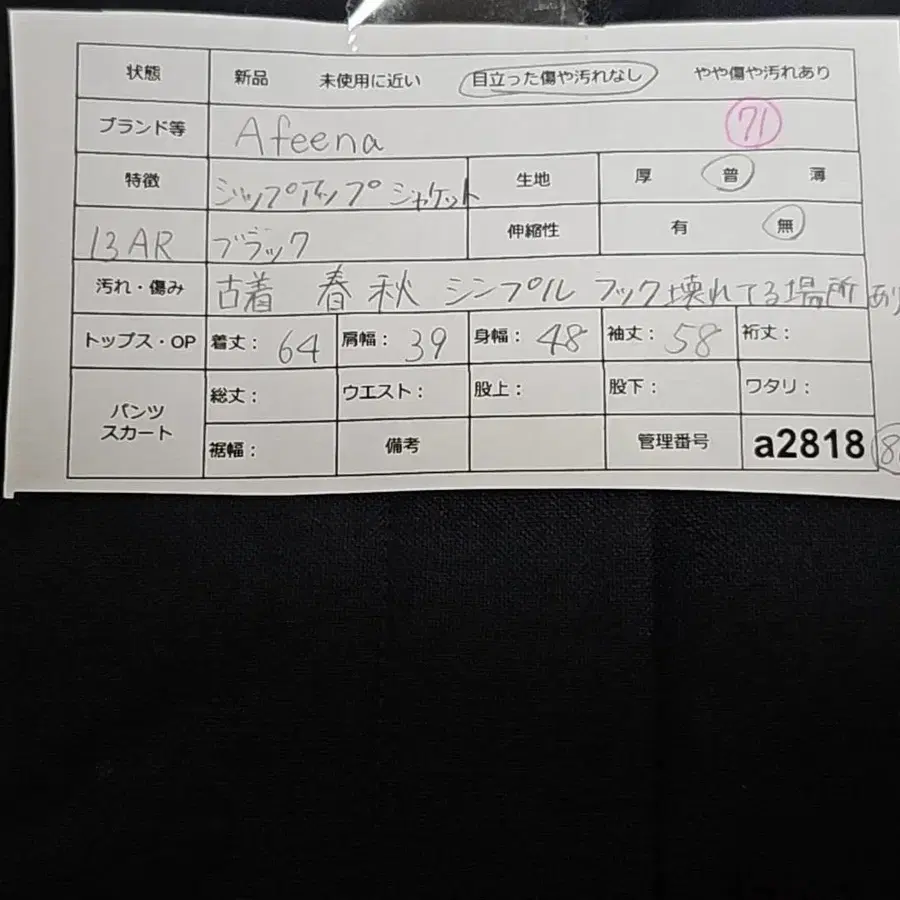 状態 新品 未使用に近い 目立った傷や汚れなし やや傷や汚れあり
ブランド等 Afeena 71
特徴 ジップアップジャケット 生地 厚 普 薄
13AR ブラック 伸縮性 有 無
汚れ・傷み 古着 春秋 シンプル フック壊れてる場所あり
トップス・OP 着丈: 64 肩幅: 39 身幅: 48 袖丈: 58 裄丈:
パンツ スカート 総丈: ウエスト: 股上: 股下: ワタリ:
裾幅: 備考 管理番号 a2818